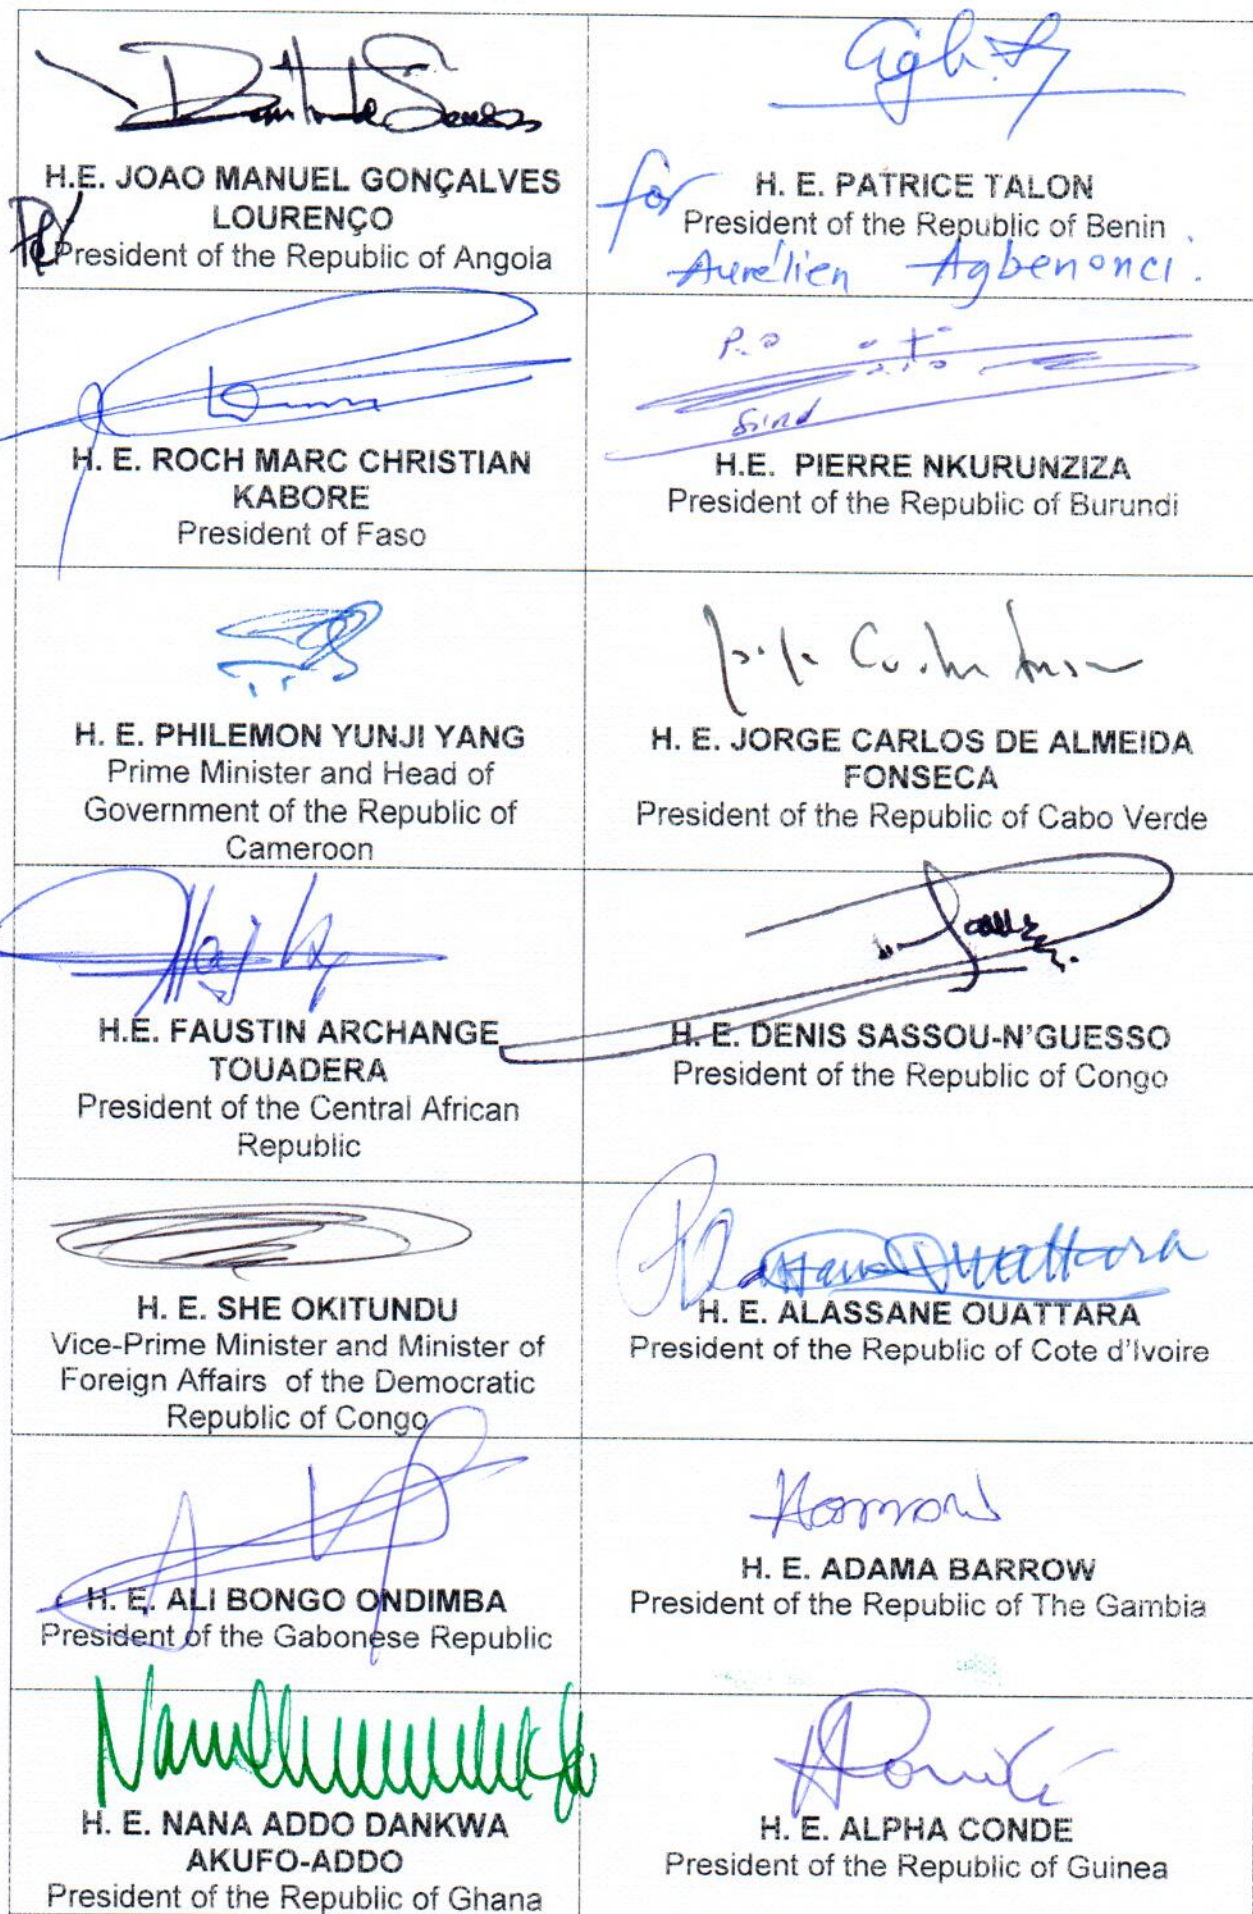 H.E. JOAO MANUEL GONÇALVES
LOURENÇO
President of the Republic of Angola
for
H. E. PATRICE TALON
President of the Republic of Benin
Aurélien Agbenonci.
H. E. ROCH MARC CHRISTIAN
KABORE
President of Faso
H.E. PIERRE NKURUNZIZA
President of the Republic of Burundi
H. E. PHILEMON YUNJI YANG
Prime Minister and Head of
Government of the Republic of
Cameroon
H. E. JORGE CARLOS DE ALMEIDA
FONSECA
President of the Republic of Cabo Verde
H.E. FAUSTIN ARCHANGE
TOUADERA
President of the Central African
Republic
H. E. DENIS SASSOU-N'GUESSO
President of the Republic of Congo
H. E. SHE OKITUNDU
Vice-Prime Minister and Minister of
Foreign Affairs of the Democratic
Republic of Congo
H. E. ALASSANE OUATTARA
President of the Republic of Cote d'Ivoire
H. E. ALI BONGO ONDIMBA
President of the Gabonese Republic
H. E. ADAMA BARROW
President of the Republic of The Gambia
H. E. NANA ADDO DANKWA
AKUFO-ADDO
President of the Republic of Ghana
H. E. ALPHA CONDE
President of the Republic of Guinea